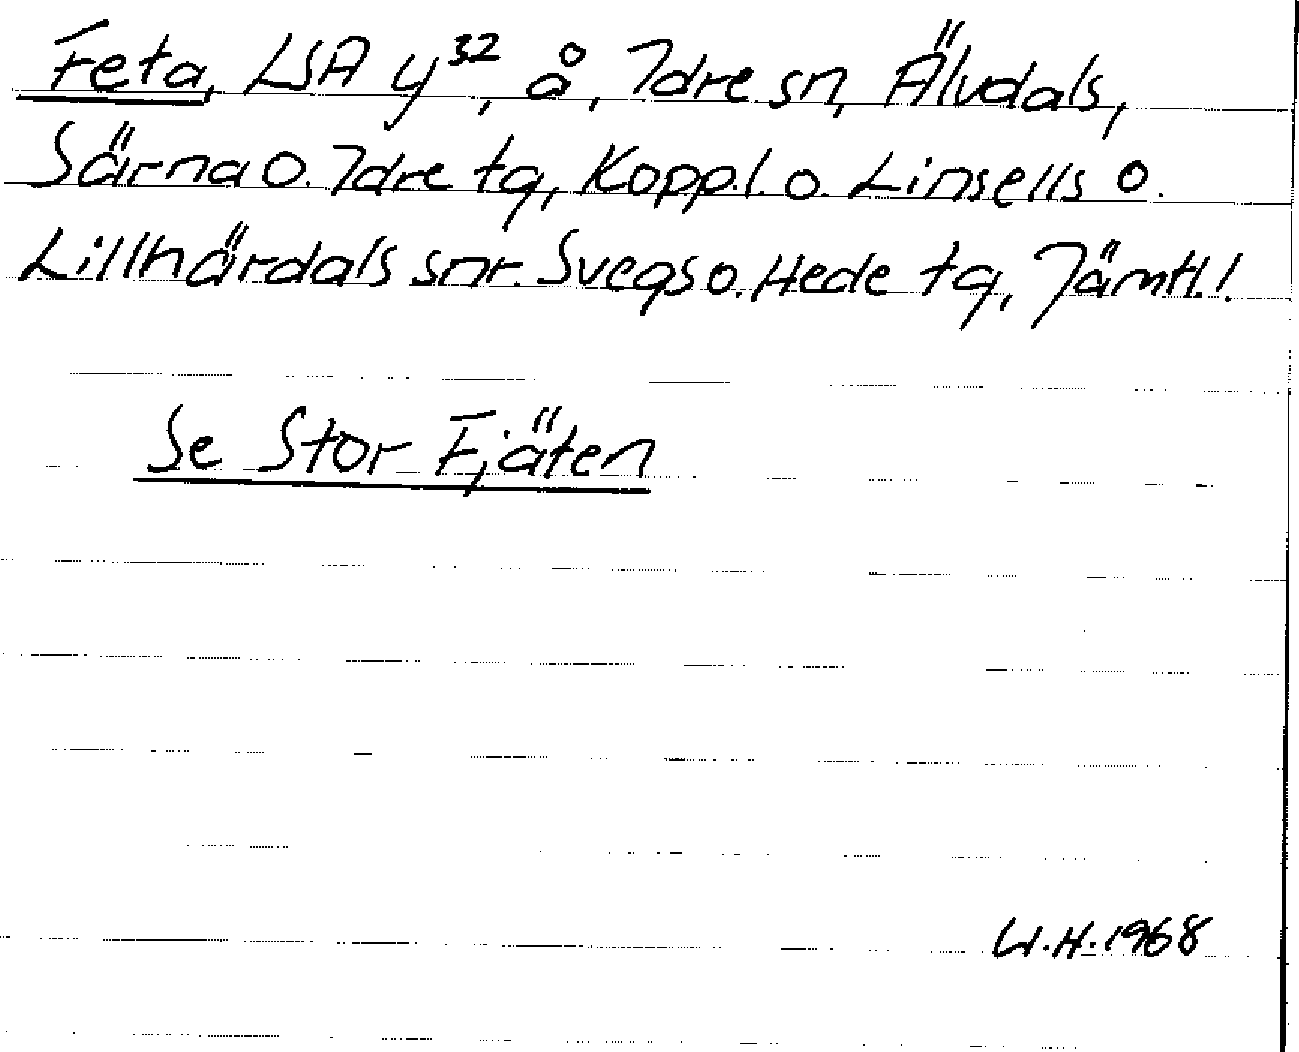 Feta, LSA y³², å, Idre sn, Älvdals,
Särna o. Idre tg, Koppl. o. Linsells o.
Lillhärdals snr. Svegs o. Hede tg, Jämtl.!
Se Stor Fjäten
W.H. 1968